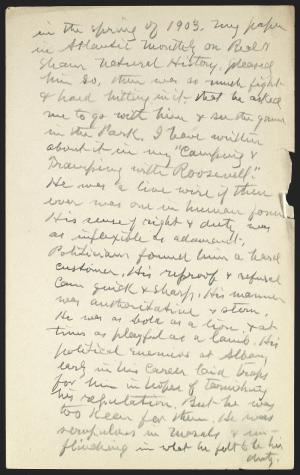 in the spring of 1903. My paper
in Atlantic Monthly on Real &
Sham Natural History, pleased
him so, there was so much fight
& hard hitting in it, that he asked
me to go with him & see the game
in the Park. I have written
about it in my "Camping &
Tramping with Roosevelt."
He was a live wire if there
ever was one in human form.
His sense of right & duty was
as inflexible as adamant.
Politicians found him a hard
customer. His reproof & refusal
came quick & sharp. His manner
was authoritative & stern.
He was as bold as a lion, & at
times as playful as a lamb. His
political enemies at Albany
early in his career laid traps
for him in hopes of tarnishing
his reputation. But he was
too keen for them. He was
scrupulous in morals & un-
flinching in what he felt to be his
duty.